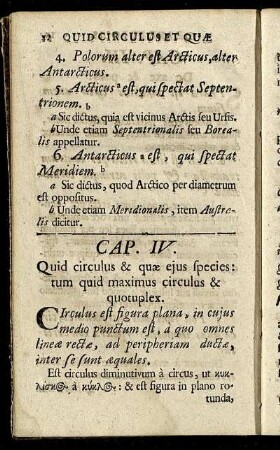 12 QUID CIRCULUS ET QUÆ
4. Polorum alter est Arcticus, alter
Antarcticus.
5. Arcticus a est, qui spectat Septen-
trionem. b
a Sic dictus, quia est vicinus Arctis seu Ursis.
b Unde etiam Septentrionalis seu Borea-
lis appellatur.
6. Antarcticus a est, qui spectat
Meridiem. b
a Sic dictus, quod Arctico per diametrum
est oppositus.
b Unde etiam Meridionalis, item Austra-
lis dicitur.
CAP. IV.
Quid circulus & quæ ejus species:
tum quid maximus circulus &
quotuplex.
CIrculus est figura plana, in cujus
medio punctum est, à quo omnes
lineæ rectæ, ad peripheriam ductæ,
inter se sunt æquales.
Est circulus diminutivum à circus, ut κυκ-
λίσκος à κύκλος: & est figura in plano ro-
tunda,